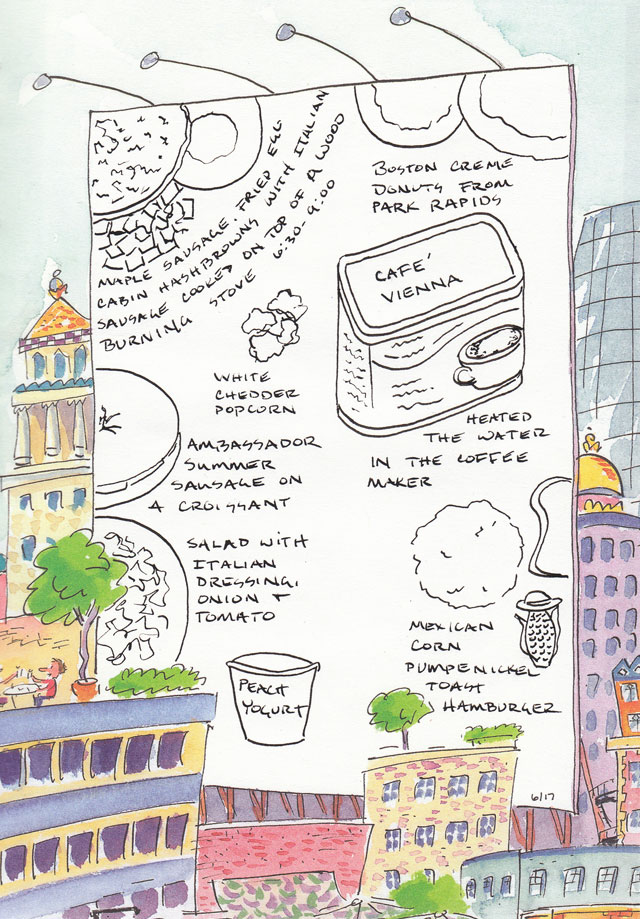 MAPLE SAUSAGE. FRIED EGG
CABIN HASHBROWNS WITH ITALIAN
SAUSAGE COOKED ON TOP OF A WOOD
BURNING STOVE 6:30-9:00
BOSTON CREME
DONUTS FROM
PARK RAPIDS
CAFE'
VIENNA
WHITE
CHEDDER
POPCORN
HEATED
THE WATER
IN THE COFFEE
MAKER
AMBASSADOR
SUMMER
SAUSAGE ON
A CROISSANT
SALAD WITH
ITALIAN
DRESSING,
ONION +
TOMATO
MEXICAN
CORN
PUMPENICKEL
TOAST
HAMBURGER
PEACH
YOGURT
6/17